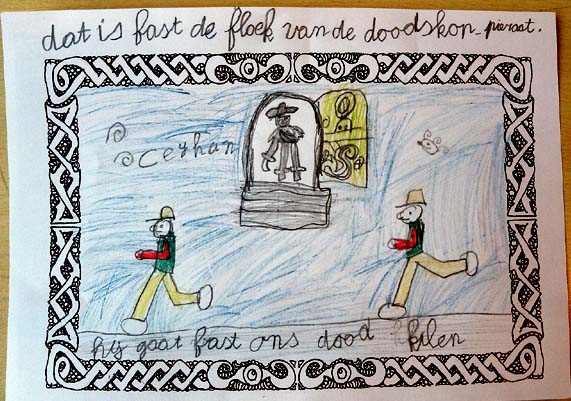 dat is fast de floek van de doodskop-pieraat.
ceyhan
hij gaat fast ons dood